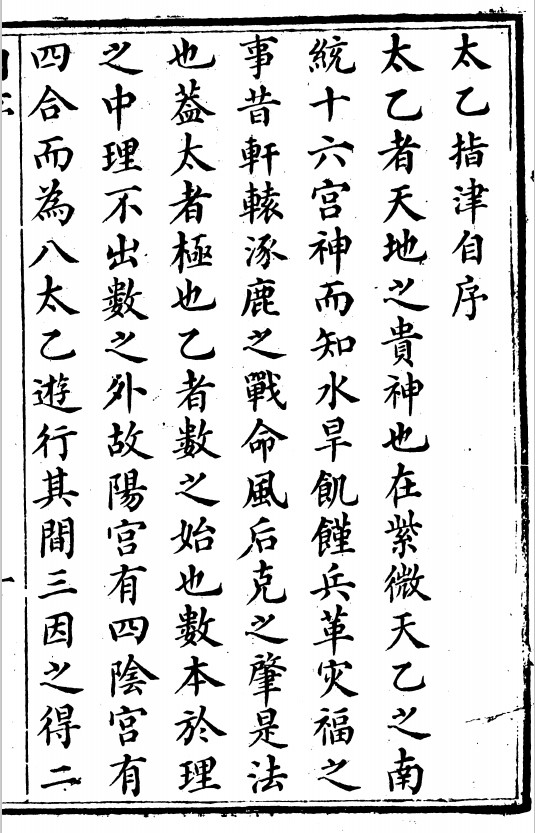 太乙指津自序
太乙者天地之貴神也在紫微天乙之南
統十六宮神而知水旱飢饉兵革灾福之
事昔軒轅涿鹿之戰命風后克之肇是法
也葢太者極也乙者數之始也數本於理
之中理不出數之外故陽宮有四陰宮有
四合而為八太乙遊行其間三因之得二